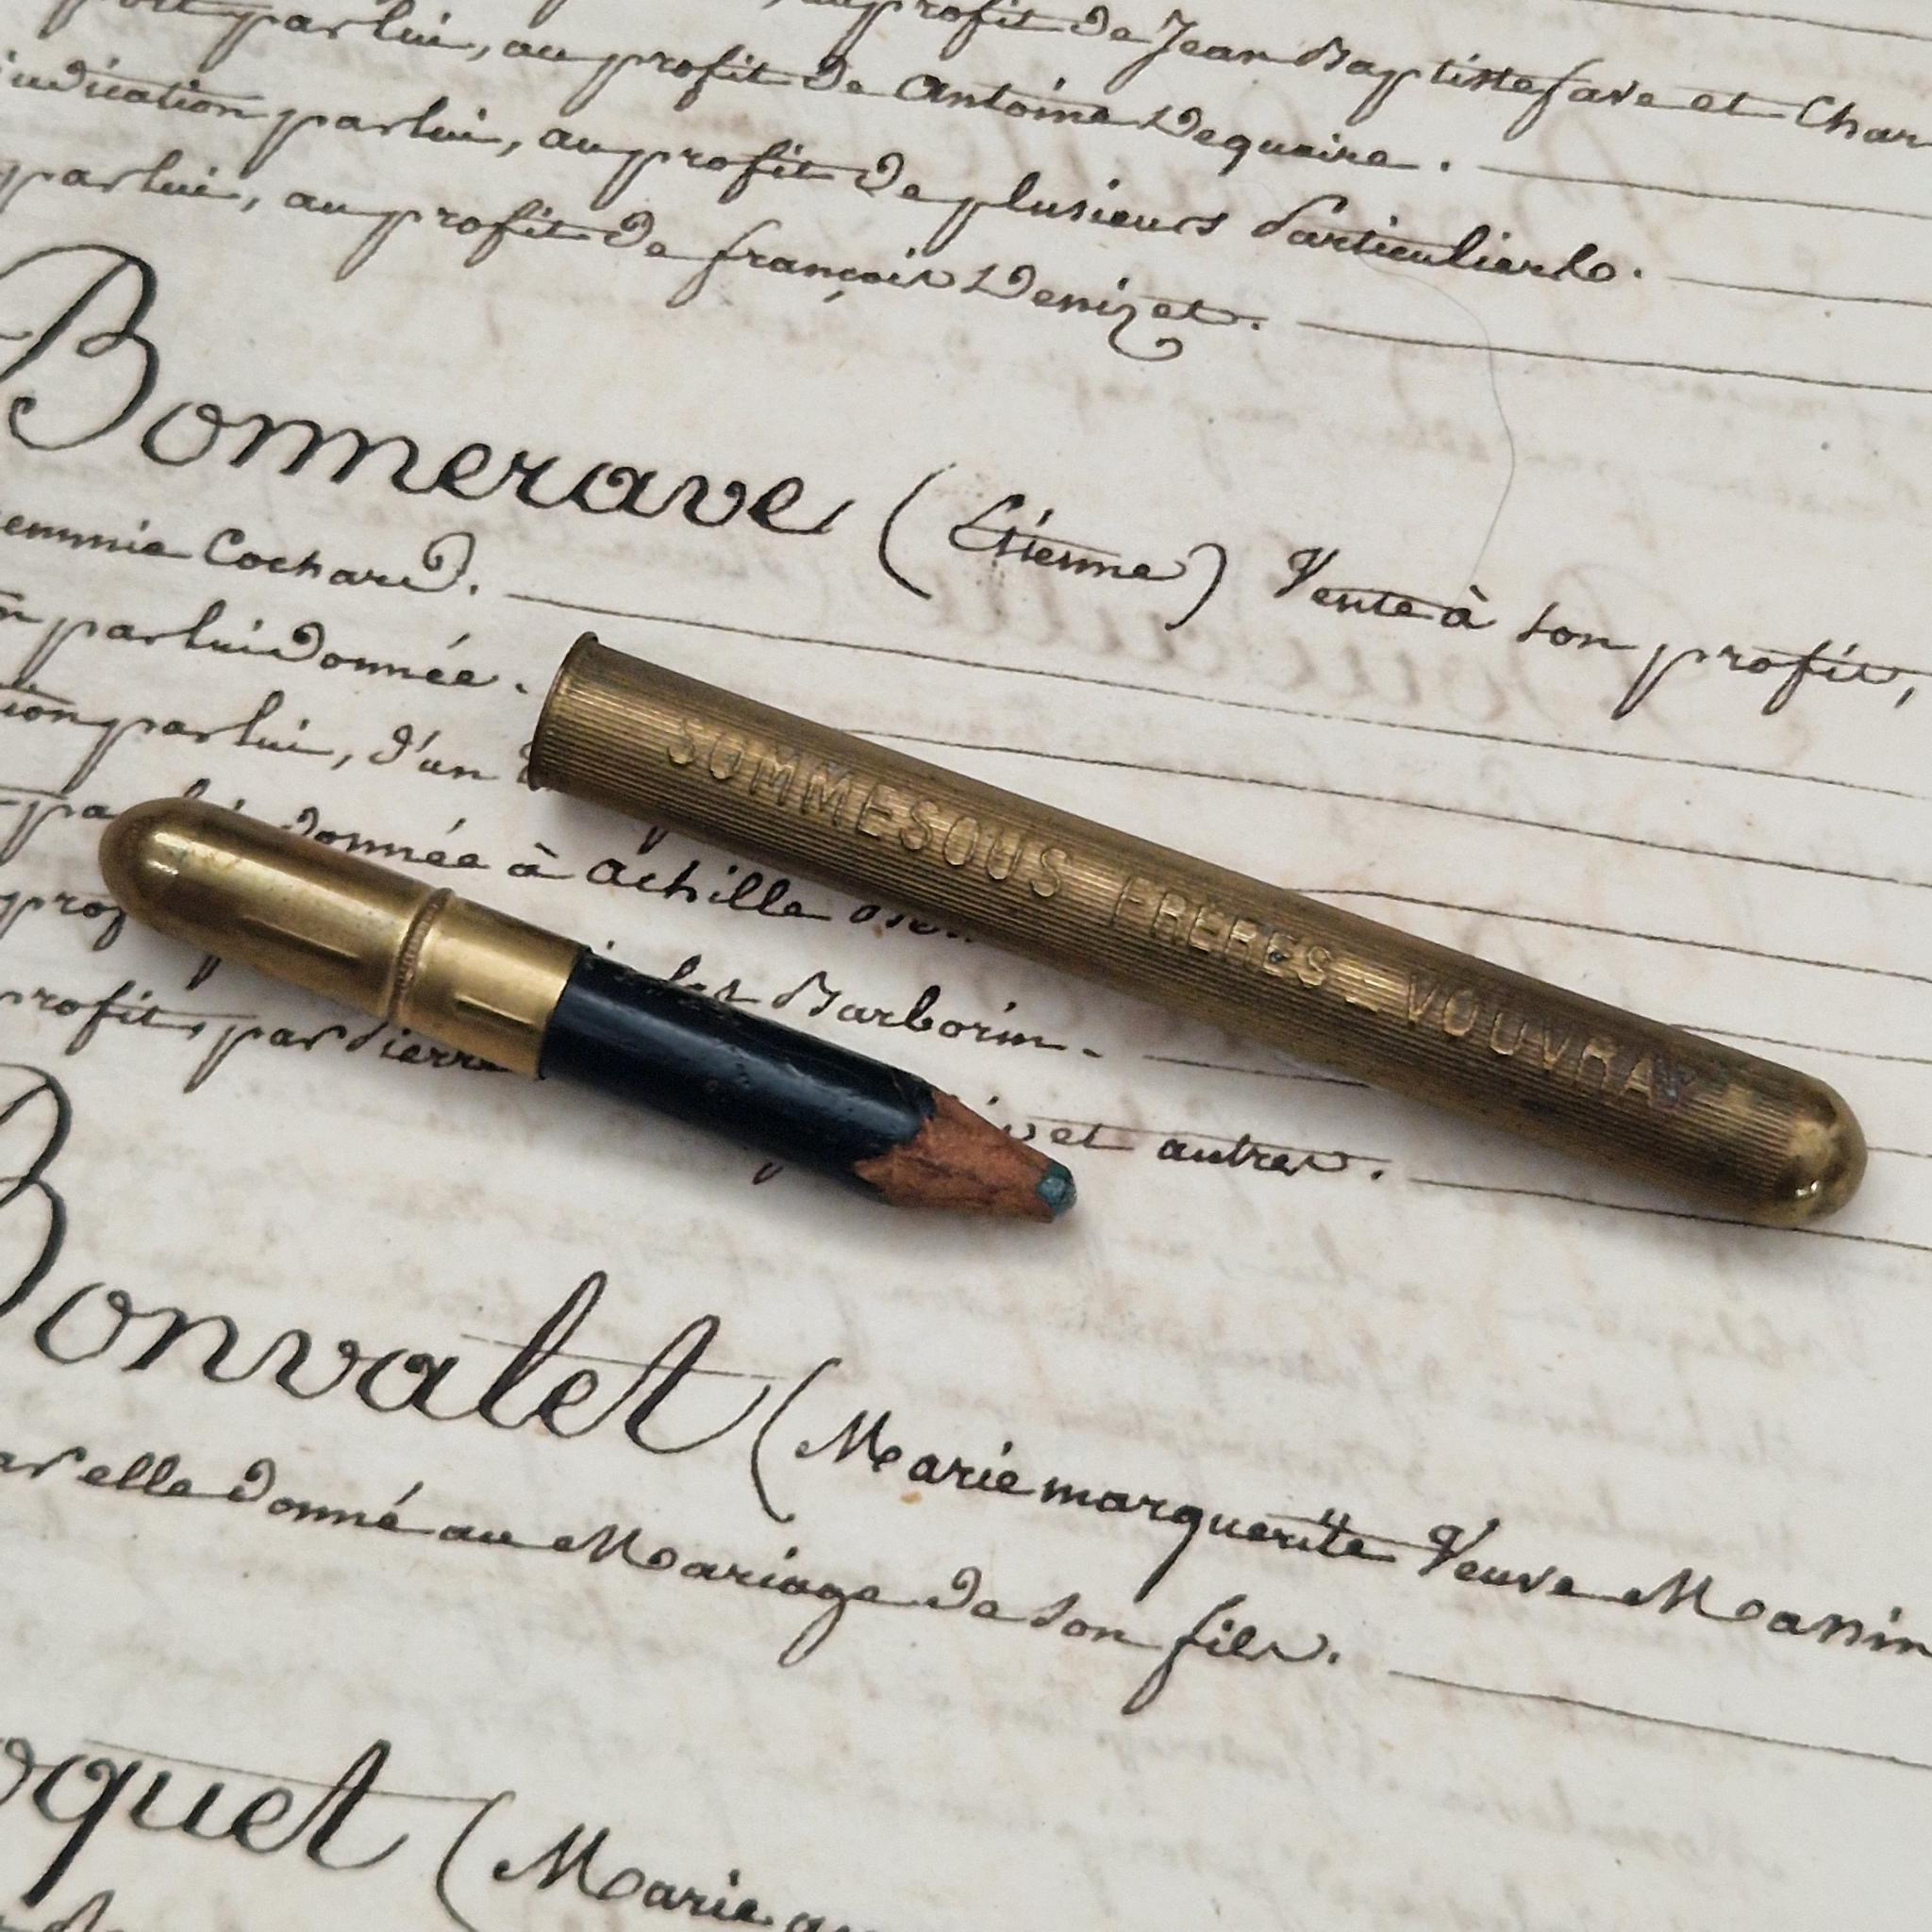 au profit de Jean Baptiste fave et Char
par lui, au profit de Antoine Dequaire.
judication par lui, au profit de plusieurs Particuliers.
par lui, au profit de françois Denizet.
Bonnerave (Etienne) Vente à son profit,
Cochard.
par lui donnée.
par lui, d'un
donnée à achille
Barborin.
et autres.
profit, par Pierre
SOMMESOUS FRERES - VOUVRAY
Bonvalet (Marie marguerite Veuve Manin
elle donné au Mariage de son fils.
oquet (Marie